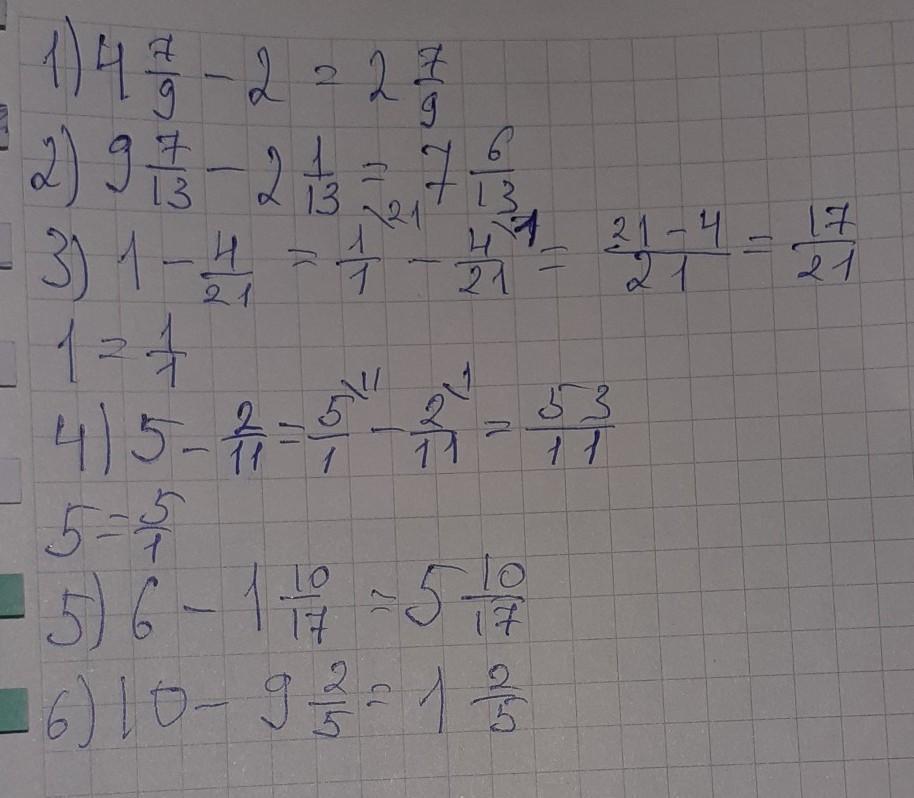 1) 4 7/9 - 2 = 2 7/9
2) 9 7/13 - 2 1/13 = 7 6/13
3) 1 - 4/21 = 1/1 \21 - 4/21 \1 = 21-4/21 = 17/21
1 = 1/1
4) 5 - 2/11 = 5/1 \11 - 2/11 \1 = 53/11
5 = 5/1
5) 6 - 1 10/17 = 5 10/17
6) 10 - 9 2/5 = 1 2/5